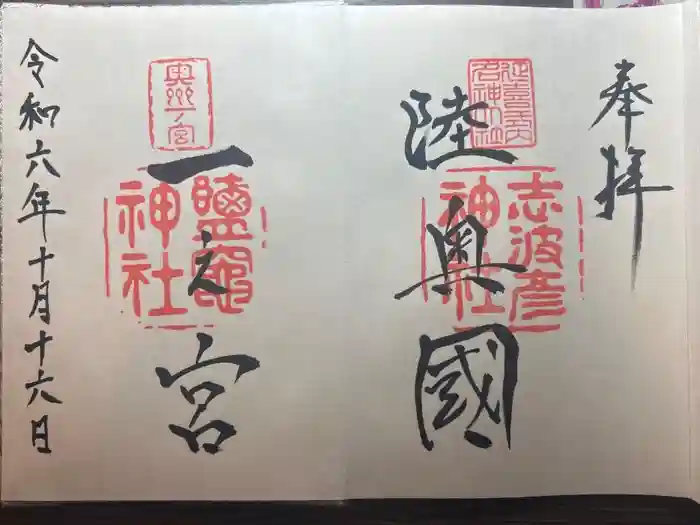 奉拝
陸奥國
延喜式内
名神大社
志波彦
神社
一之宮
奥州一ノ宮
鹽竈
神社
令和六年十月十六日